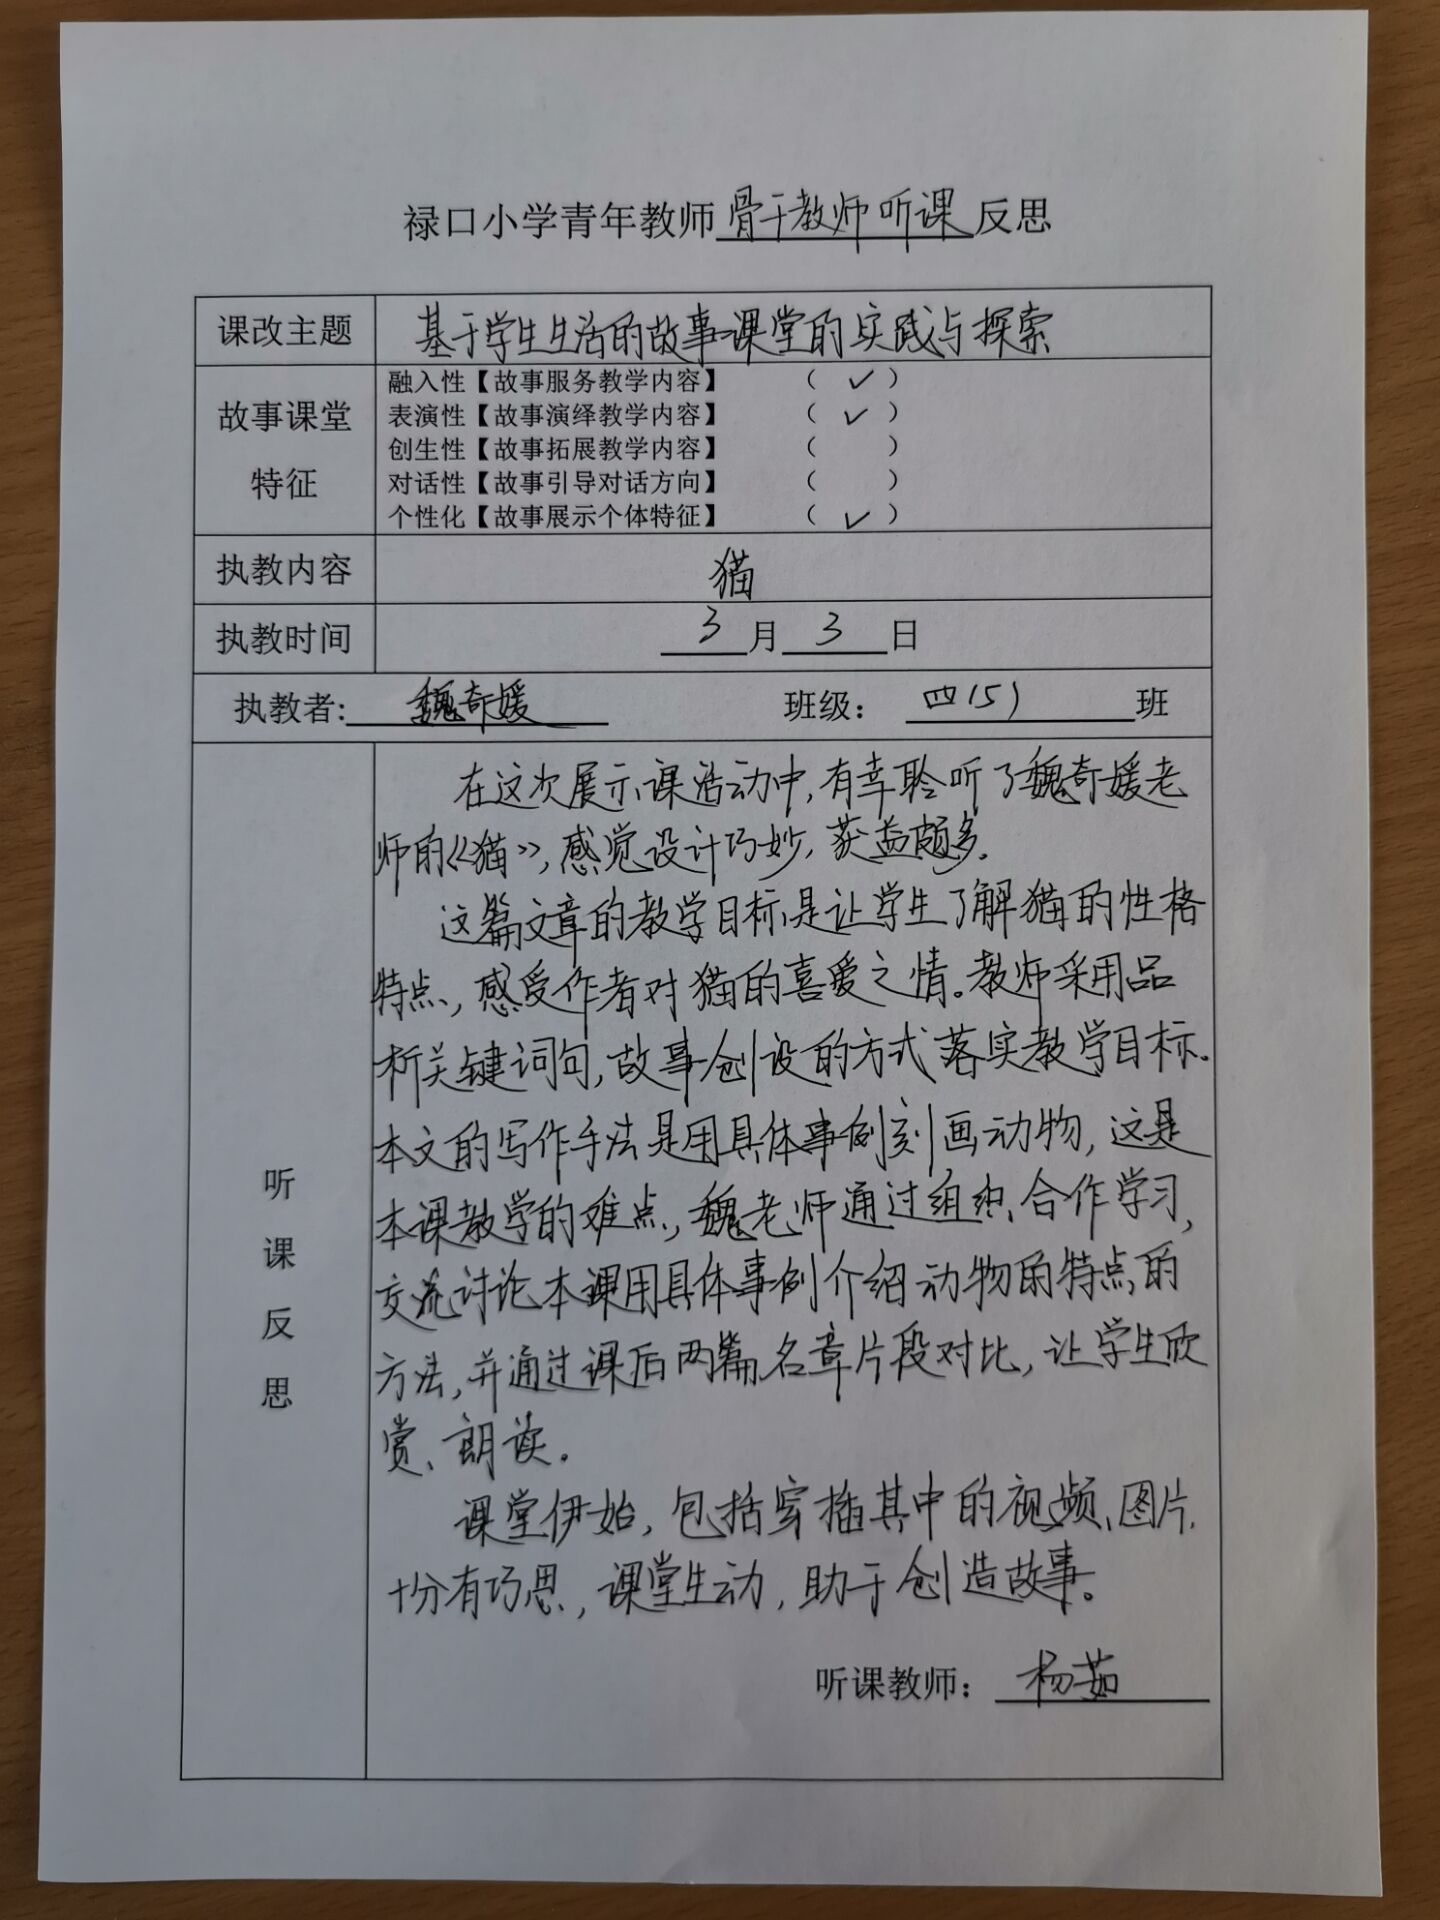 禄口小学青年教师骨干教师听课反思
课改主题 基于学生生活的故事课堂的实践与探索
故事课堂特征
融入性【故事服务教学内容】 （ ✓ ）
表演性【故事演绎教学内容】 （ ✓ ）
创生性【故事拓展教学内容】 （ ）
对话性【故事引导对话方向】 （ ）
个性化【故事展示个体特征】 （ ✓ ）
执教内容 猫
执教时间 3月3日
执教者:魏奇媛 班级：四(5)班
听课反思
在这次展示课活动中,有幸聆听了魏奇媛老
师的《猫》,感觉设计巧妙,获益颇多.
这篇文章的教学目标是让学生了解猫的性格
特点,感受作者对猫的喜爱之情。教师采用品
析关键词句,故事创设的方式落实教学目标.
本文的写作手法是用具体事例刻画动物,这是
本课教学的难点,魏老师通过组织合作学习,
交流讨论本课用具体事例介绍动物的特点的
方法,并通过课后两篇名章片段对比,让学生欣
赏、朗读.
课堂伊始,包括穿插其中的视频、图片,
十分有巧思,课堂生动,助于创造故事。
听课教师：杨茹